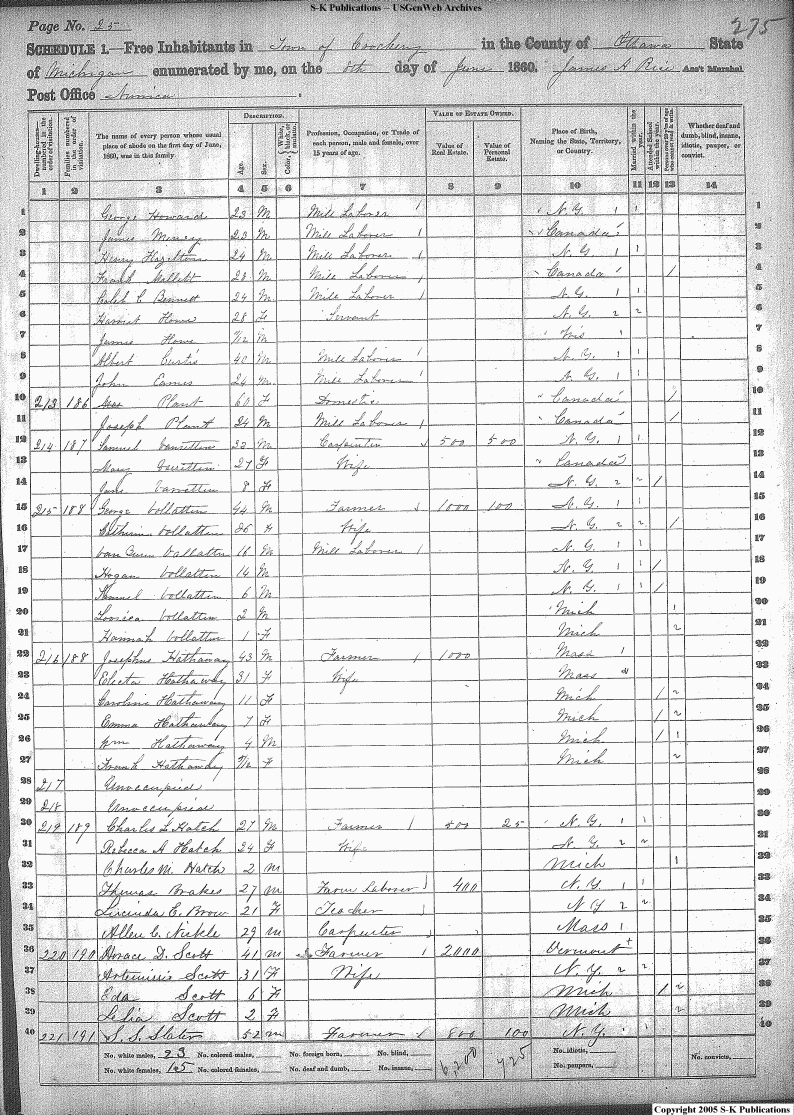 S-K Publications – USGenWeb Archives
Page No. 25
275
SCHEDULE 1.—Free Inhabitants in Town of Crockery in the County of Ottawa State
of Michigan enumerated by me, on the 8th day of June 1860. James A Rice Ass't Marshal
Post Office Nunica.
Dwelling-houses—numbered in the order of visitation.
Families numbered in the order of visitation.
The name of every person whose usual place of abode on the first day of June, 1860, was in this family.
DESCRIPTION.
Age.
Sex.
Color, White, black, or mulatto.
Profession, Occupation, or Trade of each person, male and female, over 15 years of age.
VALUE OF ESTATE OWNED.
Value of Real Estate.
Value of Personal Estate.
Place of Birth, Naming the State, Territory, or Country.
Married within the year.
Attended School within the year.
Whether deaf and dumb, blind, insane, idiotic, pauper, or convict.
1 2 3 4 5 6 7 8 9 10 11 12 13 14
1 George Howard 23 M Mill Laborer 1 N. Y. 1 1 1
2 James 23 M Mill Laborer 1 Canada 2
3 Henry Hazelton 24 M Mill Laborer 1 N. Y. 1 1 3
4 Frank 28 M Mill Laborer 1 Canada / 4
5 Ralph C Bennett 24 M Mill Laborer 1 N. Y. 1 1 5
6 Harriet Howe 28 F Servant N. Y. 2 2 6
7 James Howe /12 M Wis 1 7
8 Albert Curtis 40 M Mill Laborer 1 N. Y. 1 1 8
9 John Eames 24 M Mill Laborer 1 N. Y. 1 1 9
10 213 186 Plant 60 F Domestic Canada / 10
11 Joseph Plant 24 M Mill Laborer 1 Canada / 11
12 214 187 Samuel 33 M Carpenter 500 500 N. Y. 1 1 12
13 Mary 27 F Wife Canada 13
14 Jane 8 F N. Y. 2 2 / 14
15 215 188 George Vollatten 44 M Farmer 1000 100 N. Y. 1 1 15
16 Catherine Vollatten 36 F Wife N. Y. 2 2 / 16
17 Van Buren Vollatten 16 M Mill Laborer 1 N. Y. 1 1 17
18 Hogan Vollatten 14 M N. Y. 1 1 / 18
19 Vollatten 6 M N. Y. 1 1 / 19
20 Vollatten 2 M Mich 1 20
21 Hannah Vollatten 1 F Mich 2 21
22 216 188 Josephus Hathaway 43 M Farmer 1 1000 Mass 1 22
23 Electa Hathaway 31 F Wife Mass 23
24 Caroline Hathaway 11 F Mich / 2 24
25 Emma Hathaway 7 F Mich / 2 25
26 Wm Hathaway 4 M Mich / 1 26
27 Hathaway /12 F Mich 2 27
28 217 Unoccupied 28
29 218 Unoccupied 29
30 219 189 Charles L Hatch 27 M Farmer 1 800 25 N. Y. 1 1 30
31 Rebecca A Hatch 24 F Wife N. Y. 2 2 31
32 Charles M. Hatch 2 m Mich 1 32
33 Thomas Brakes 27 m Farm Laborer 1 400 N. Y. 1 1 33
34 Lucinda E. Brow 21 F Teacher 1 N Y 2 2 34
35 Allen C. Nickle 29 m Carpenter 1 Mass 1 35
36 220 190 Horace D. Scott 41 m Farmer 1 2000 Vermont + 36
37 Artemisia Scott 31 F Wife N. Y. 2 2 37
38 Eda Scott 6 F Mich 1 2 38
39 Lelia Scott 2 F Mich 2 39
40 221 191 S. S. Slater 52 m Farmer 1 800 100 N. Y. 1 1 40
No. white males, 23 No. colored males, No. foreign born, No. blind, 6,200 725 No. idiotic, No. convicts,
No. white females, 15 No. colored females, No. deaf and dumb, No. insane, No. paupers,
Copyright 2005 S-K Publications